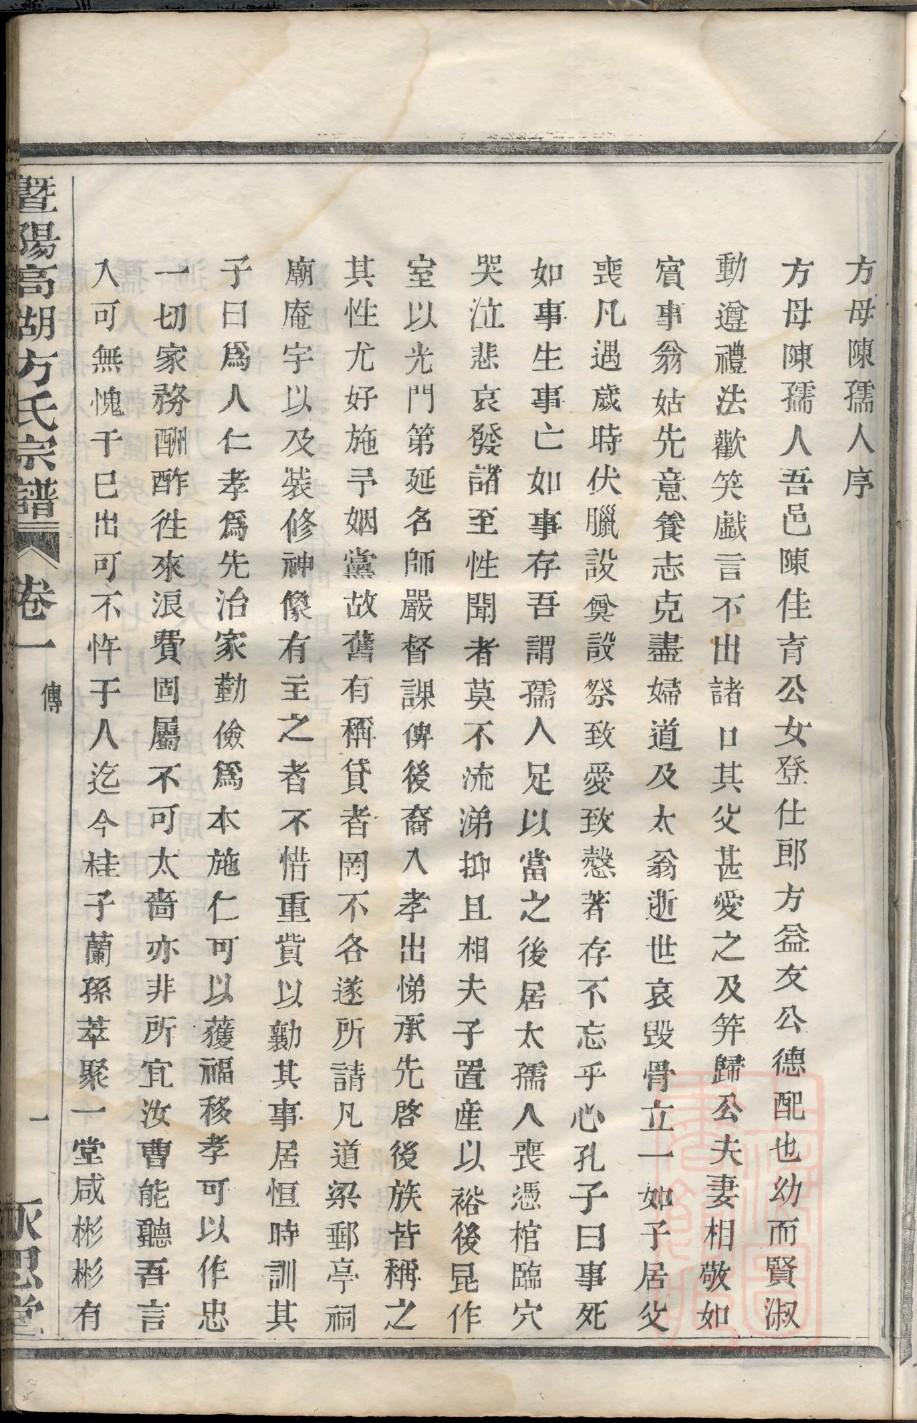 方母陳孺人序
方母陳孺人吾邑陳佳育公女登仕郎方益友公德配也幼而賢淑
動遵禮法歡笑戲言不出諸口其父甚愛之及笄歸公夫妻相敬如
賓事翁姑先意養志克盡婦道及太翁逝世哀毀骨立一如子居父
喪凡遇歲時伏臘設奠設祭致愛致慤著存不忘乎心孔子曰事死
如事生事亡如事存吾謂孺人足以當之後居太孺人喪憑棺臨穴
哭泣悲哀發諸至性聞者莫不流涕抑且相夫子置產以裕後昆作
室以光門第延名師嚴督課俾後裔入孝出悌承先啓後族皆稱之
其性尤好施予姻黨故舊有稱貸者罔不各遂所請凡道梁郵亭祠
廟庵宇以及裝修神像有主之者不惜重貲以勷其事居恒時訓其
子曰爲人仁孝爲先治家勤儉爲本施仁可以獲福移孝可以作忠
一切家務酬酢徃來浪費固屬不可太嗇亦非所宜汝曹能聽吾言
入可無愧于已出可不忤于人迄今桂子蘭孫萃聚一堂咸彬彬有
暨陽高湖方氏宗譜 卷一 傳 一 永思堂